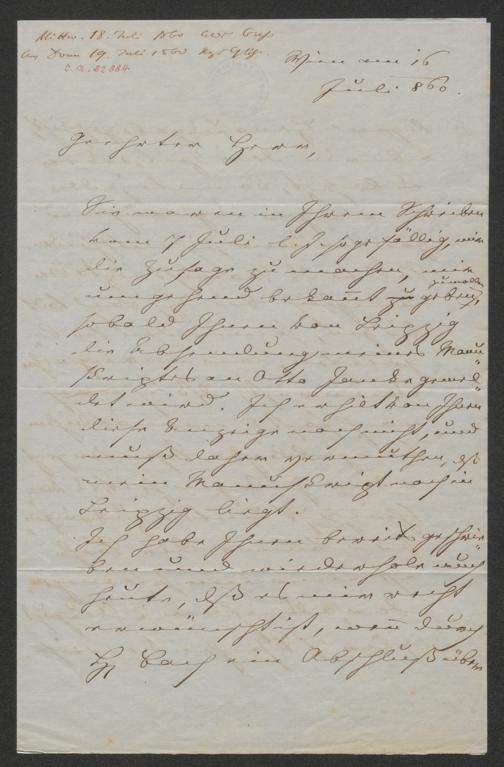 Mittw. 18. Juli 1860
Donn 19. Juli 1860
I.N. 82884
Wien am 16
Juli 860.
Geehrter Herr,
Sie waren in Ihrem Schreiben
vom 7 Juli l. J. so gefällig, mir
die Zusage zu machen, mir
umgehend bekant zu geben,
zu wollen
sobald Ihnen von Leipzig
die Absendung meines Manu"
skriptes an Otto Janke gemel"
det wird. Ich erhielt von Ihnen
diese Anzeige noch nicht, und
muß daher vermuthen, dß
mein Manuskript noch in
Leipzig liegt.
Ich habe Ihnen bereits geschrie"
ben und wiederhole auch
heute, dß es mir recht
erwünscht ist, wen̄ durch
H Bach ein Abschluß über